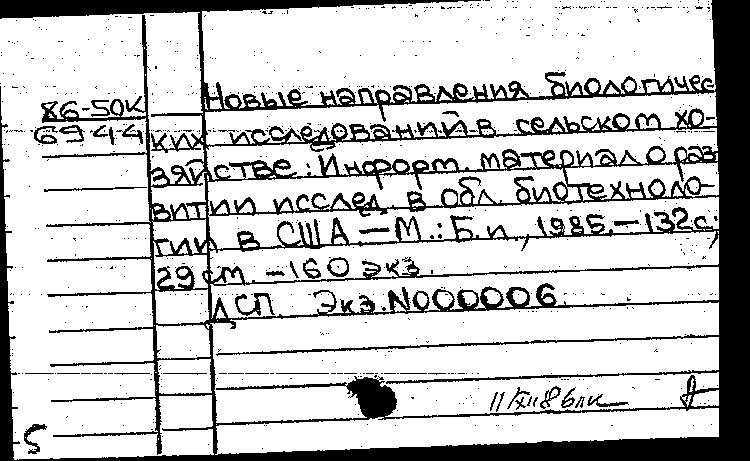 86-50К
6944
Новые направления биологичес
ких исследований в сельском хо-
зяйстве: Информ. материал о раз
витии исслед. в обл. биотехноло-
гии в США.—М.: Б.и., 1985.—132с.;
29 см. —160 экз.
ДСП. Экз. N000006.
5